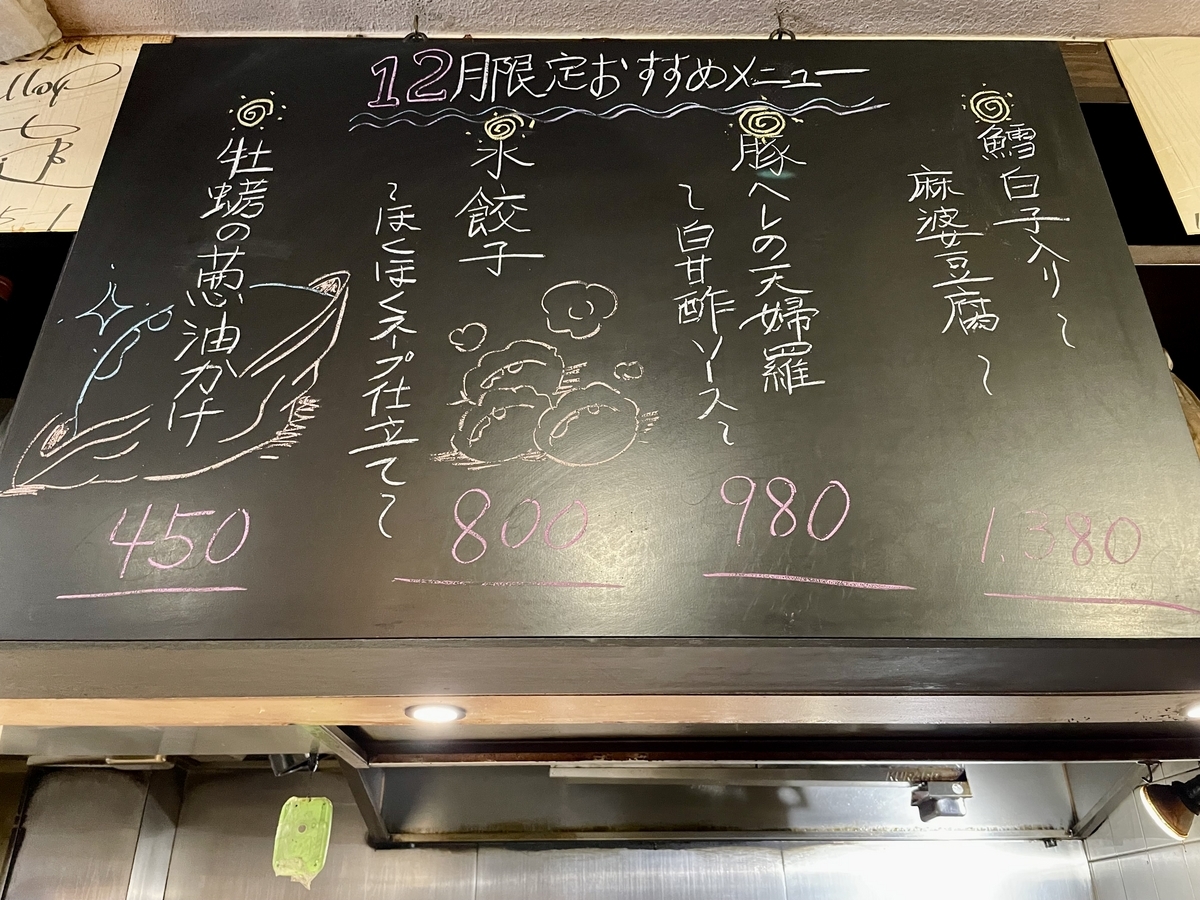 12月限定おすすめメニュー
鱈白子入り〜
麻婆豆腐〜
1,380
豚ヘレの天婦羅
〜白甘酢ソース〜
980
水餃子
〜ほくほくスープ仕立て〜
800
牡蠣の葱油かけ
450